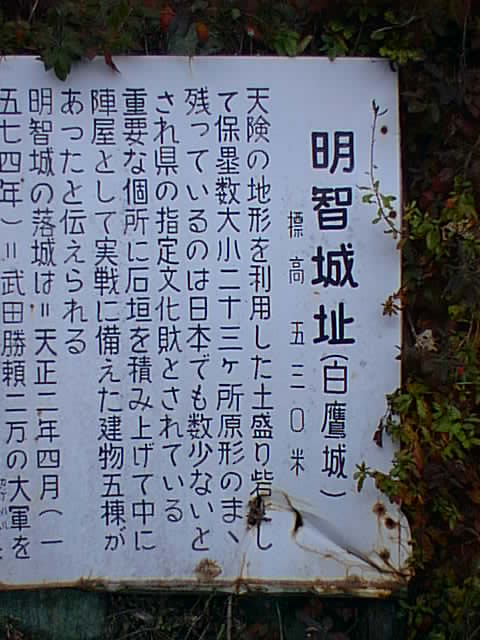 明智城址(白鷹城)
標高五三〇米
天険の地形を利用した土盛り砦とし
て保塁数大小二十三ヶ所原形のまゝ
残っているのは日本でも数少ないと
され県の指定文化財とされている
重要な個所に石垣を積み上げて中に
陣屋として実戦に備えた建物五棟が
あったと伝えられる
明智城の落城は=天正二年四月(一
五七四年)=武田勝頼二万の大軍を